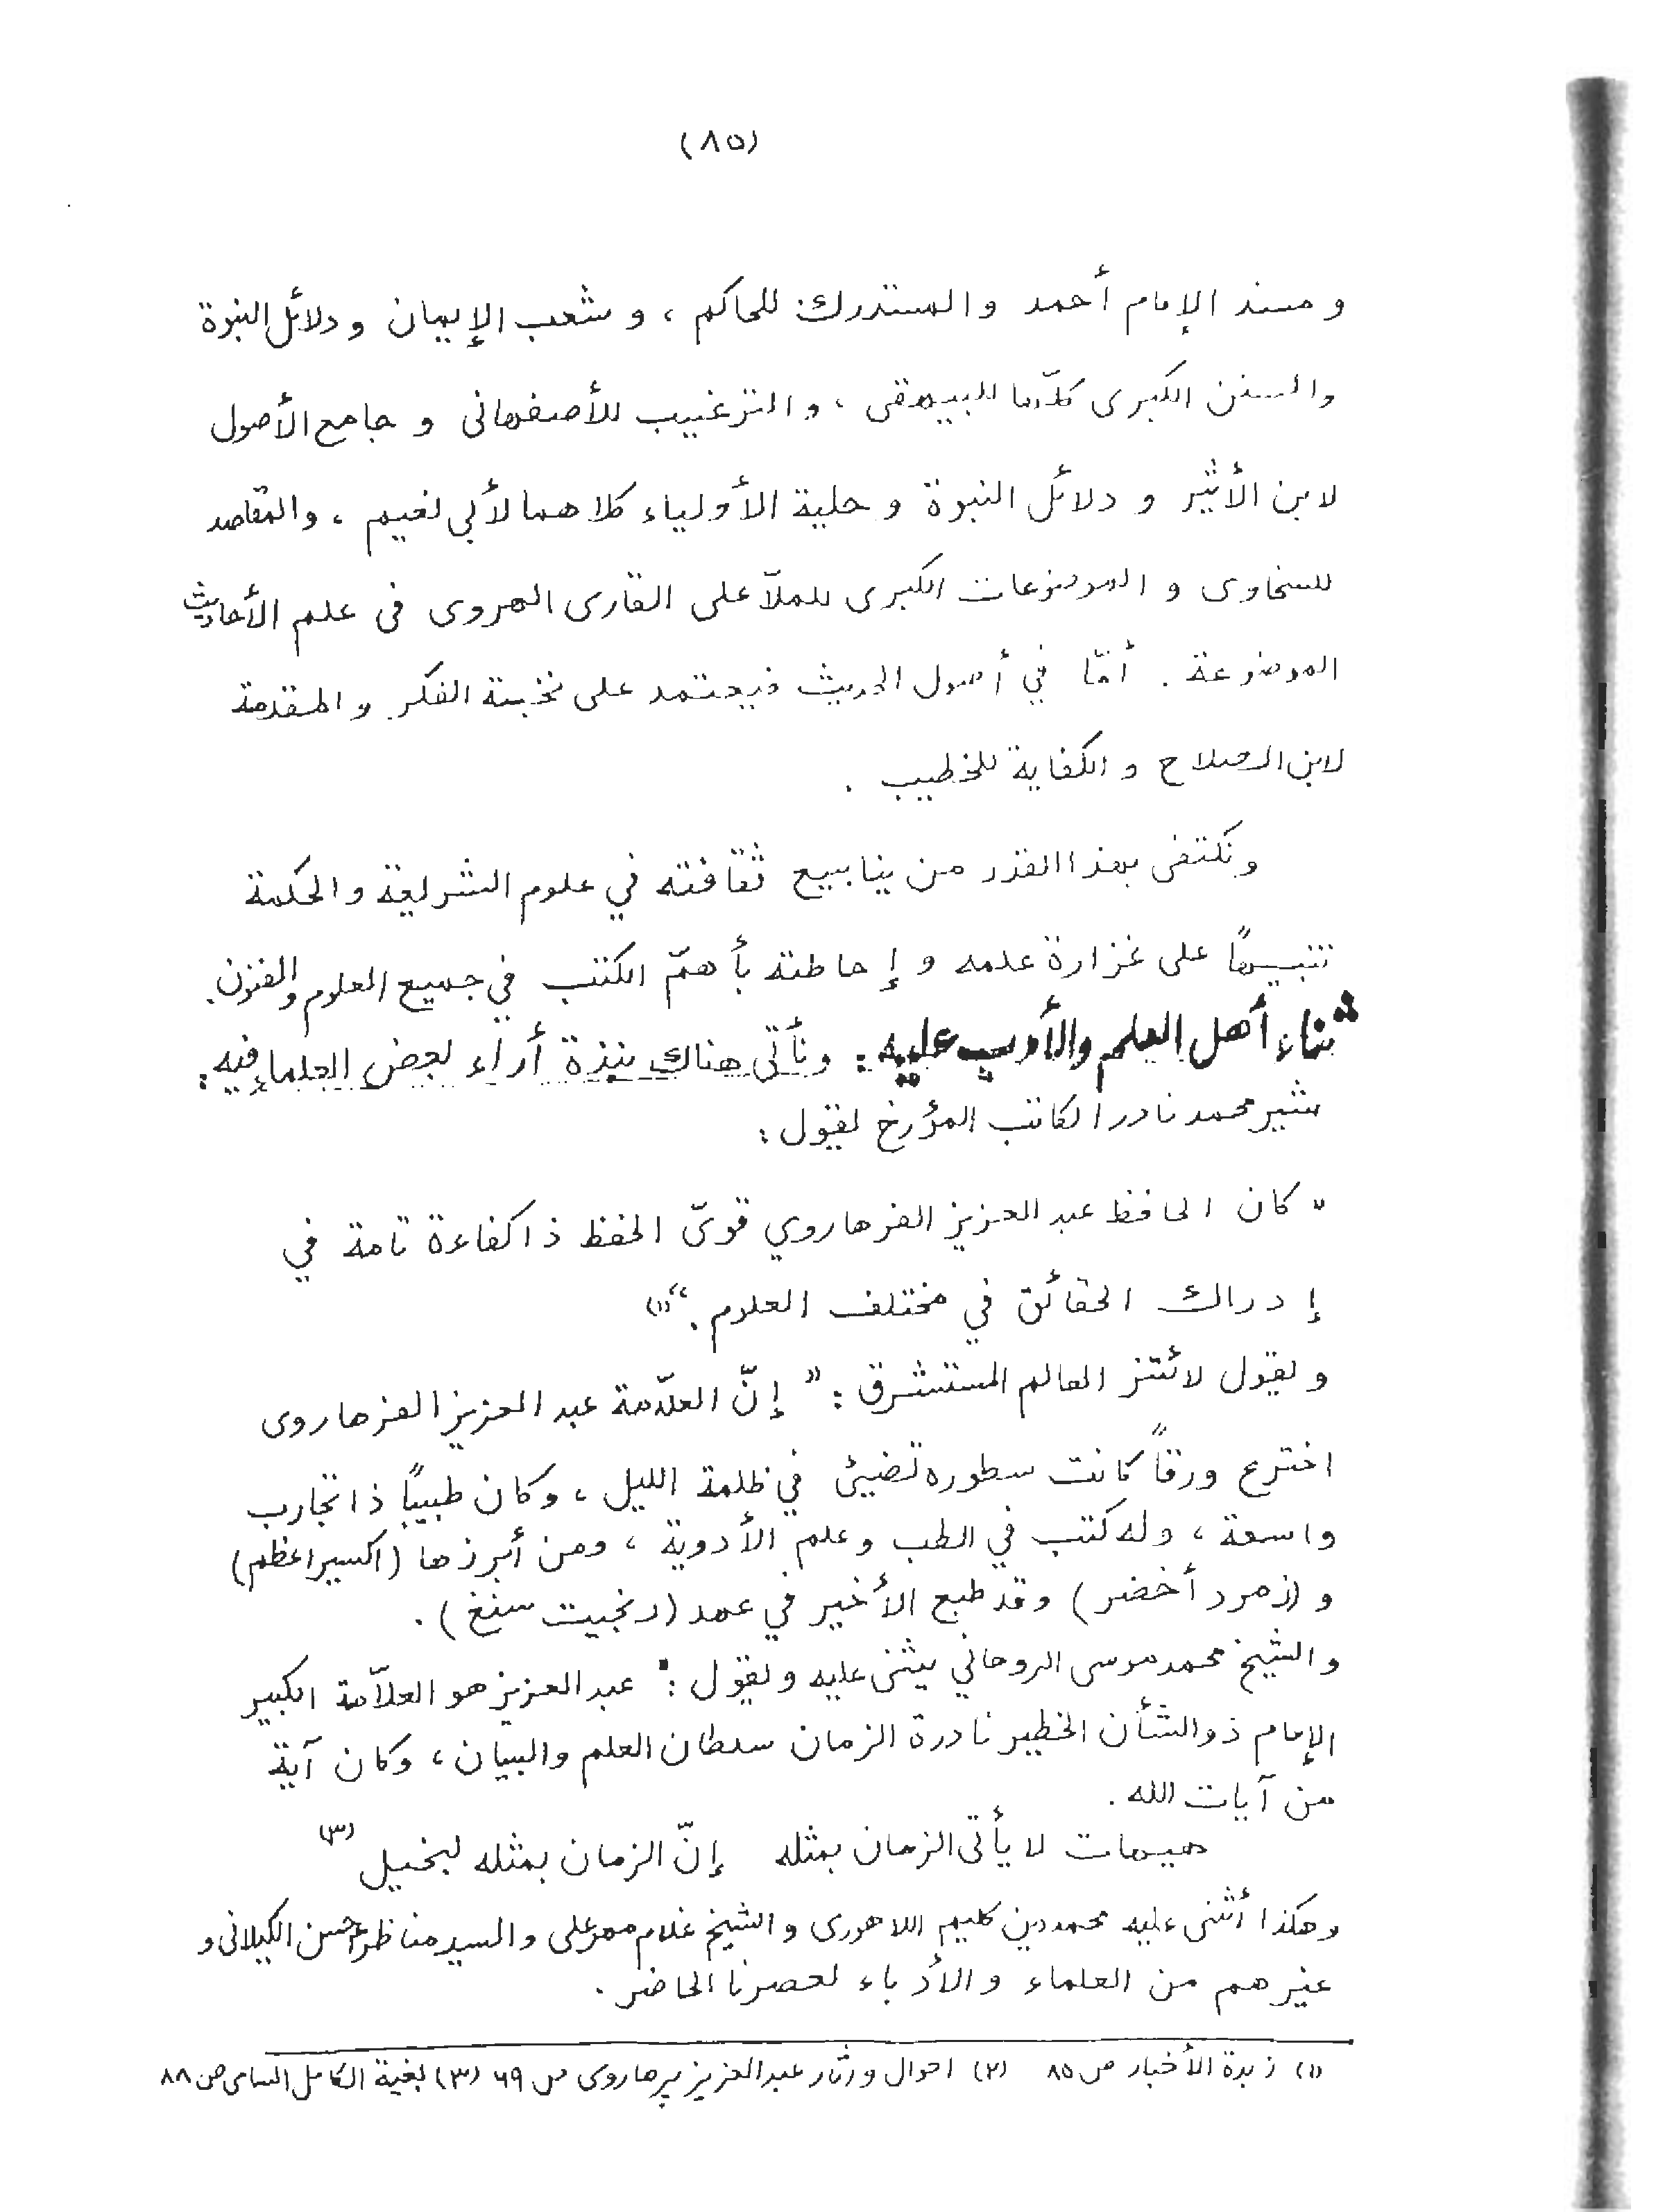 (٨٥)
و مسند الإمام أحمد والمستدرك للحاكم ، و شعب الإيمان و دلائل النبوة
والسنن الكبرى كلّها للبيهقى ، و الترغيب للأصفهانى و جامع الأصول
لابن الأثير و دلائل النبوة و حلية الأولياء كلاهما لأبى نعيم ، والمقاصد
للسخاوى و الموضوعات الكبرى للملاّ على القارى الهروى فى علم الأحاديث
الموضوعة . أمّا في أصول الحديث فيعتمد على نخبة الفكر و المقدمة
لابن الصلاح و الكفاية للخطيب .
و نكتفى بهذا القدر من ينابيع ثقافته في علوم الشريعة والحكمة
تنبيهًا على غزارة علمه و إحاطته بأهمّ الكتب في جميع العلوم والفنون.
ثناء أهل العلم والأدب عليه : ونأتى هناك بنبذة أراء بعض العلماء فيه :
شير محمد نادر الكاتب المؤرخ يقول :
" كان الحافظ عبد العزيز الفرهاروي قوىّ الحفظ ذا كفاءة تامة في
إدراك الحقائق في مختلف العلوم ." (١)
و يقول لائتنر العالم المستشرق : " إنّ العلاّمة عبد العزيز الفرهاروى
اخترع ورقاً كانت سطوره تضيئ في ظلمة الليل ، وكان طبيبًا ذا تجارب
واسعة ، وله كتب في الطب وعلم الأدوية ، ومن أبرزها (اكسير اعظم)
و (زمرد أخضر) وقد طبع الأخير في عهد (رنجيت سنغ) .
والشيخ محمد موسى الروحاني يثنى عليه ويقول : عبد العزيز هو العلاّمة الكبير
الإمام ذو الشأن الخطير نادرة الزمان سلطان العلم والبيان ، وكان آية
من آيات الله .
هيهات لا يأتى الزمان بمثله إنّ الزمان بمثله لبخيل (٣)
وهكذا أثنى عليه محمد دين كليم اللاهورى و الشيخ غلام مهر على و السيد مناظر احسن الكيلانى و
غيرهم من العلماء و الأدباء لعصرنا الحاضر .
(١) زبدة الأخبار ص ٨٥ (٢) احوال و آثار عبد العزيز پرهاروى ص ٦٩ (٣) بغية الكامل السامى ص ٨٨